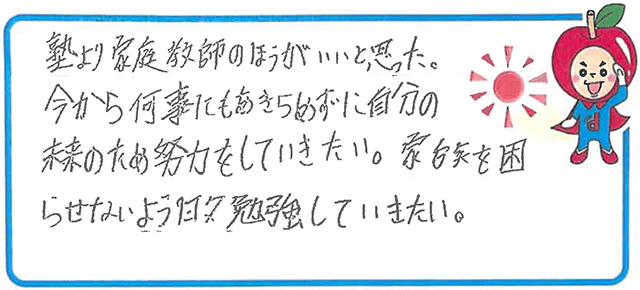 塾より家庭教師のほうがいいと思った。
今から何事にもあきらめずに自分の
未来のため努力をしていきたい。家族を困
らせないよう日々勉強していきたい。
d